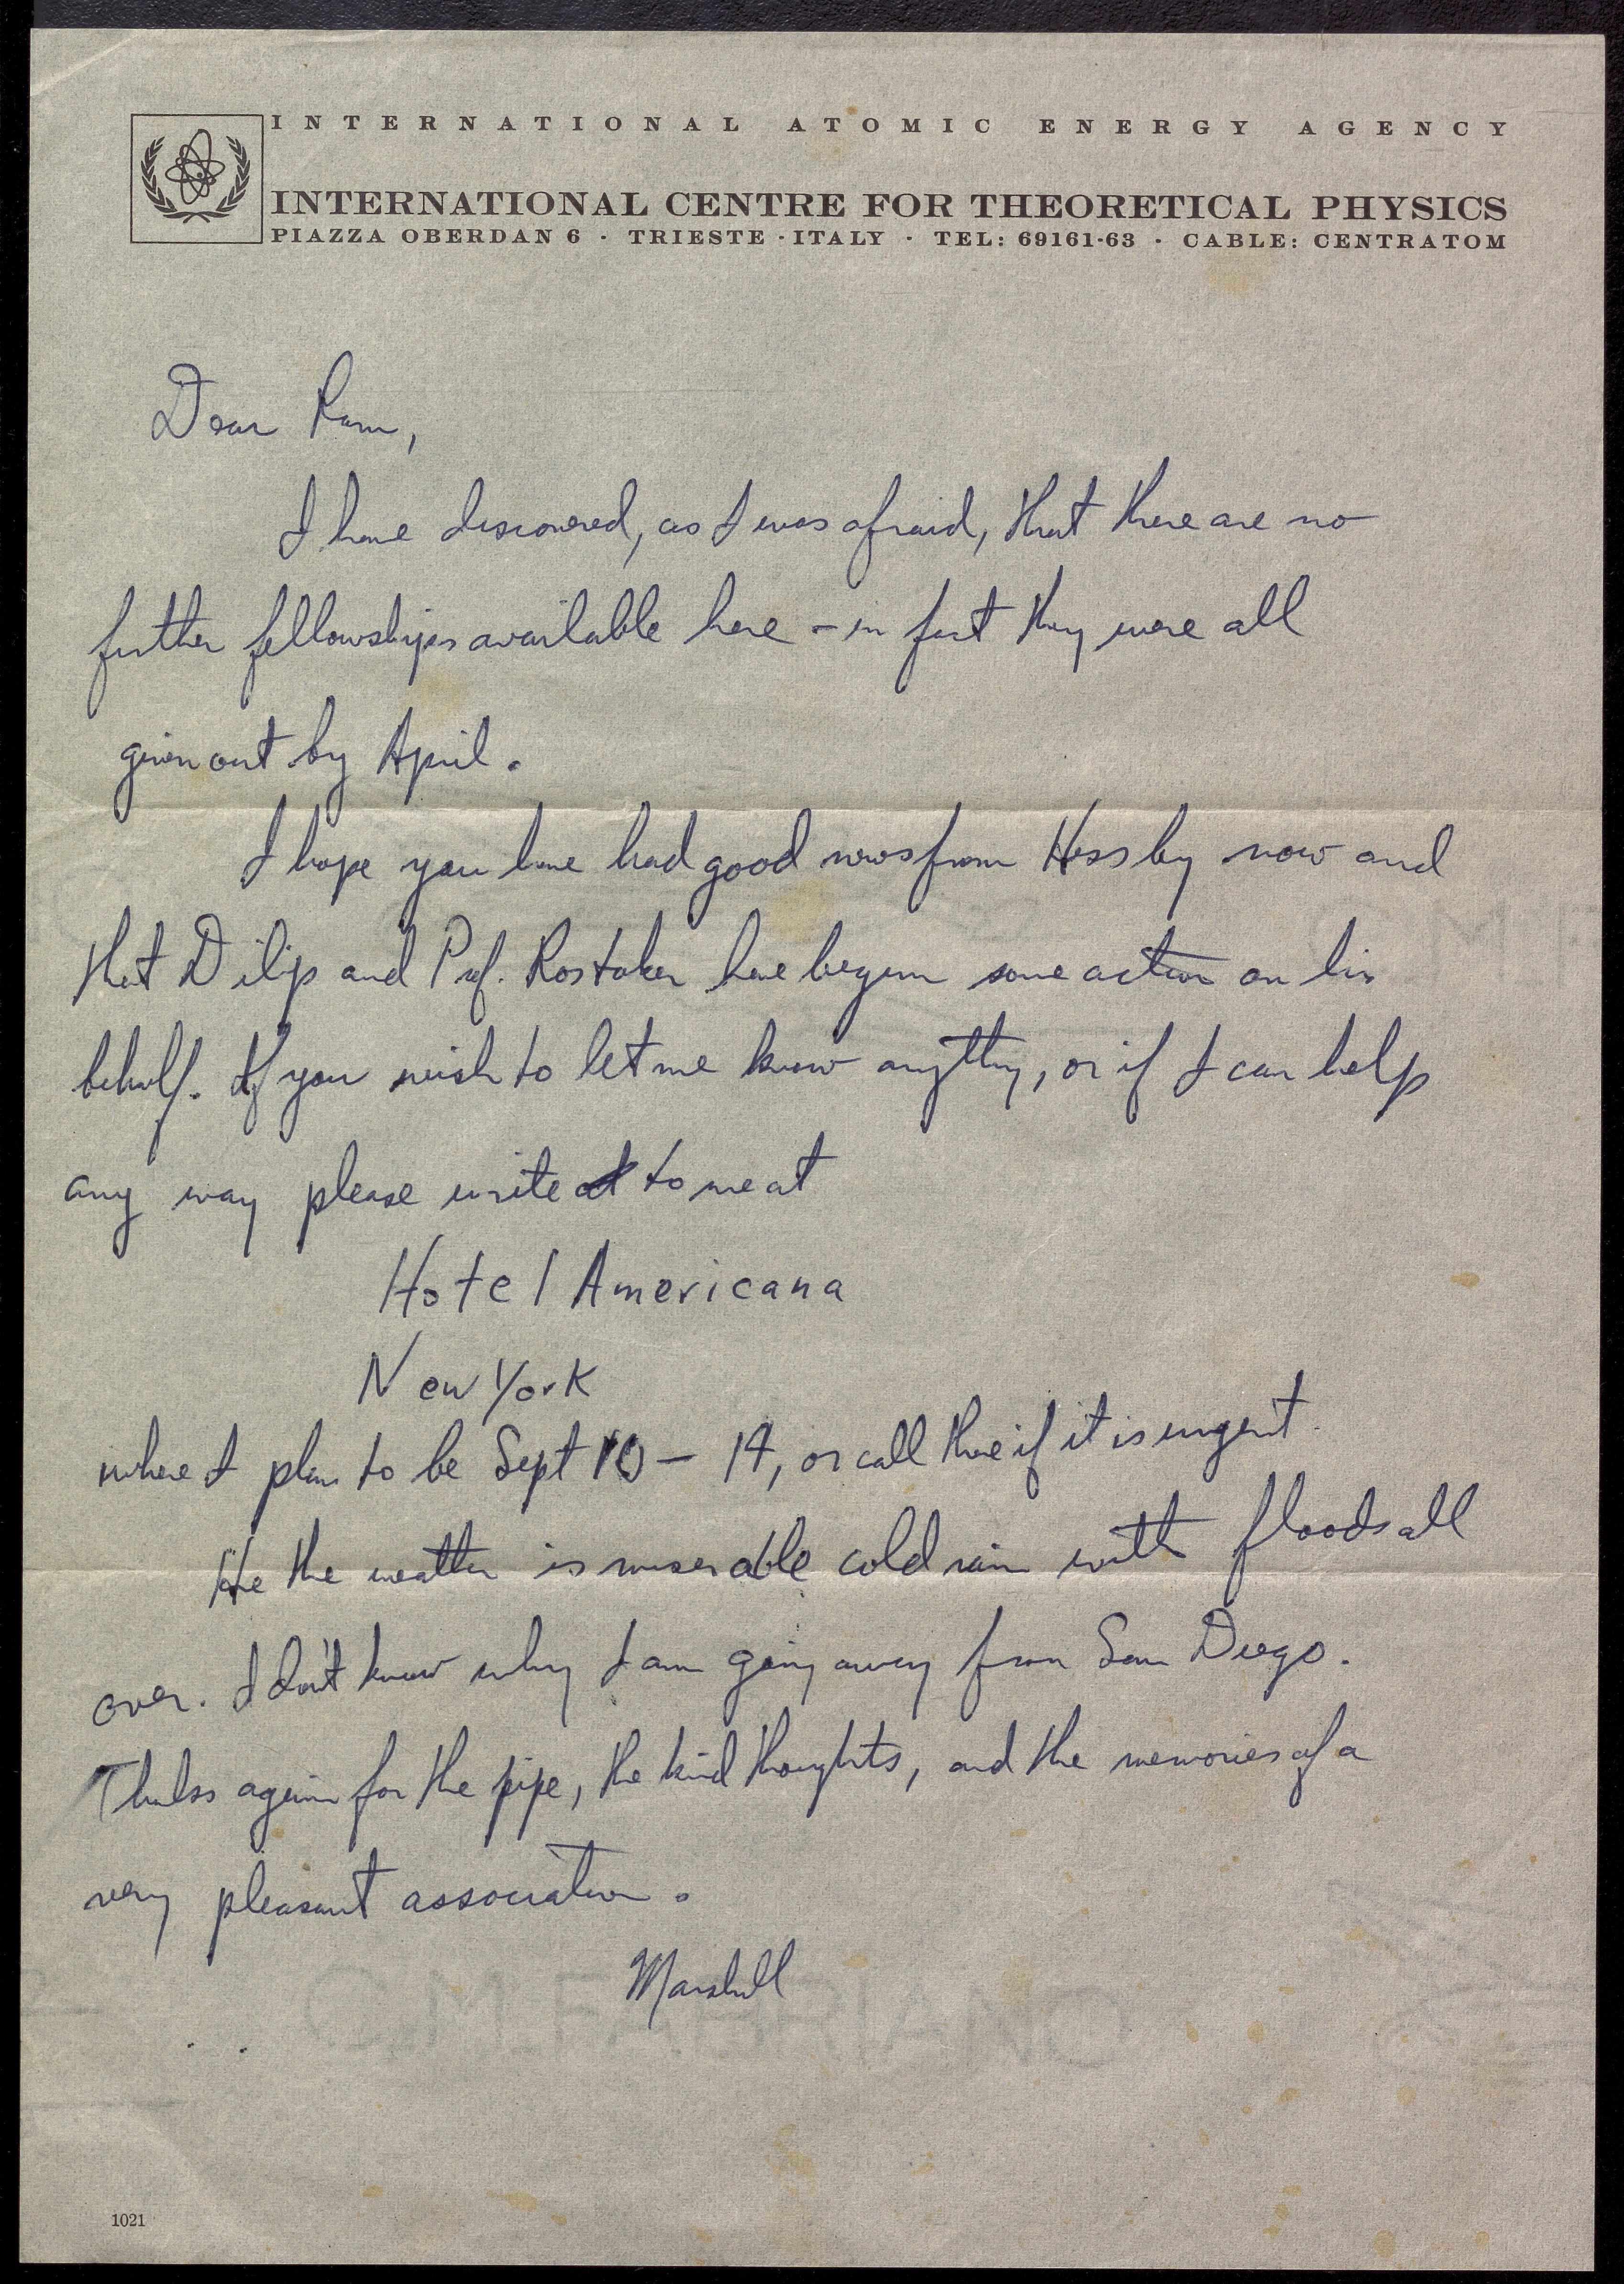 INTERNATIONAL ATOMIC ENERGY AGENCY
INTERNATIONAL CENTRE FOR THEORETICAL PHYSICS
PIAZZA OBERDAN 6 · TRIESTE · ITALY · TEL: 69161-63 · CABLE: CENTRATOM
Dear Ram,
I have discovered, as I was afraid, that there are no
further fellowships available here – in fact they were all
given out by April.
I hope you have had good news from Hess by now and
that Dilip and Prof. Rostoker have begun some action on his
behalf. If you wish to let me know anything, or if I can help
any way please write at to me at
Hotel Americana
New York
where I plan to be Sept 10 – 14, or call there if it is urgent.
Here the weather is miserable cold rain with floods all
over. I don't know why I am going away from San Diego.
Thanks again for the pipe, the kind thoughts, and the memories of a
very pleasant association.
Marshall
C.M.FABRIANO
1021